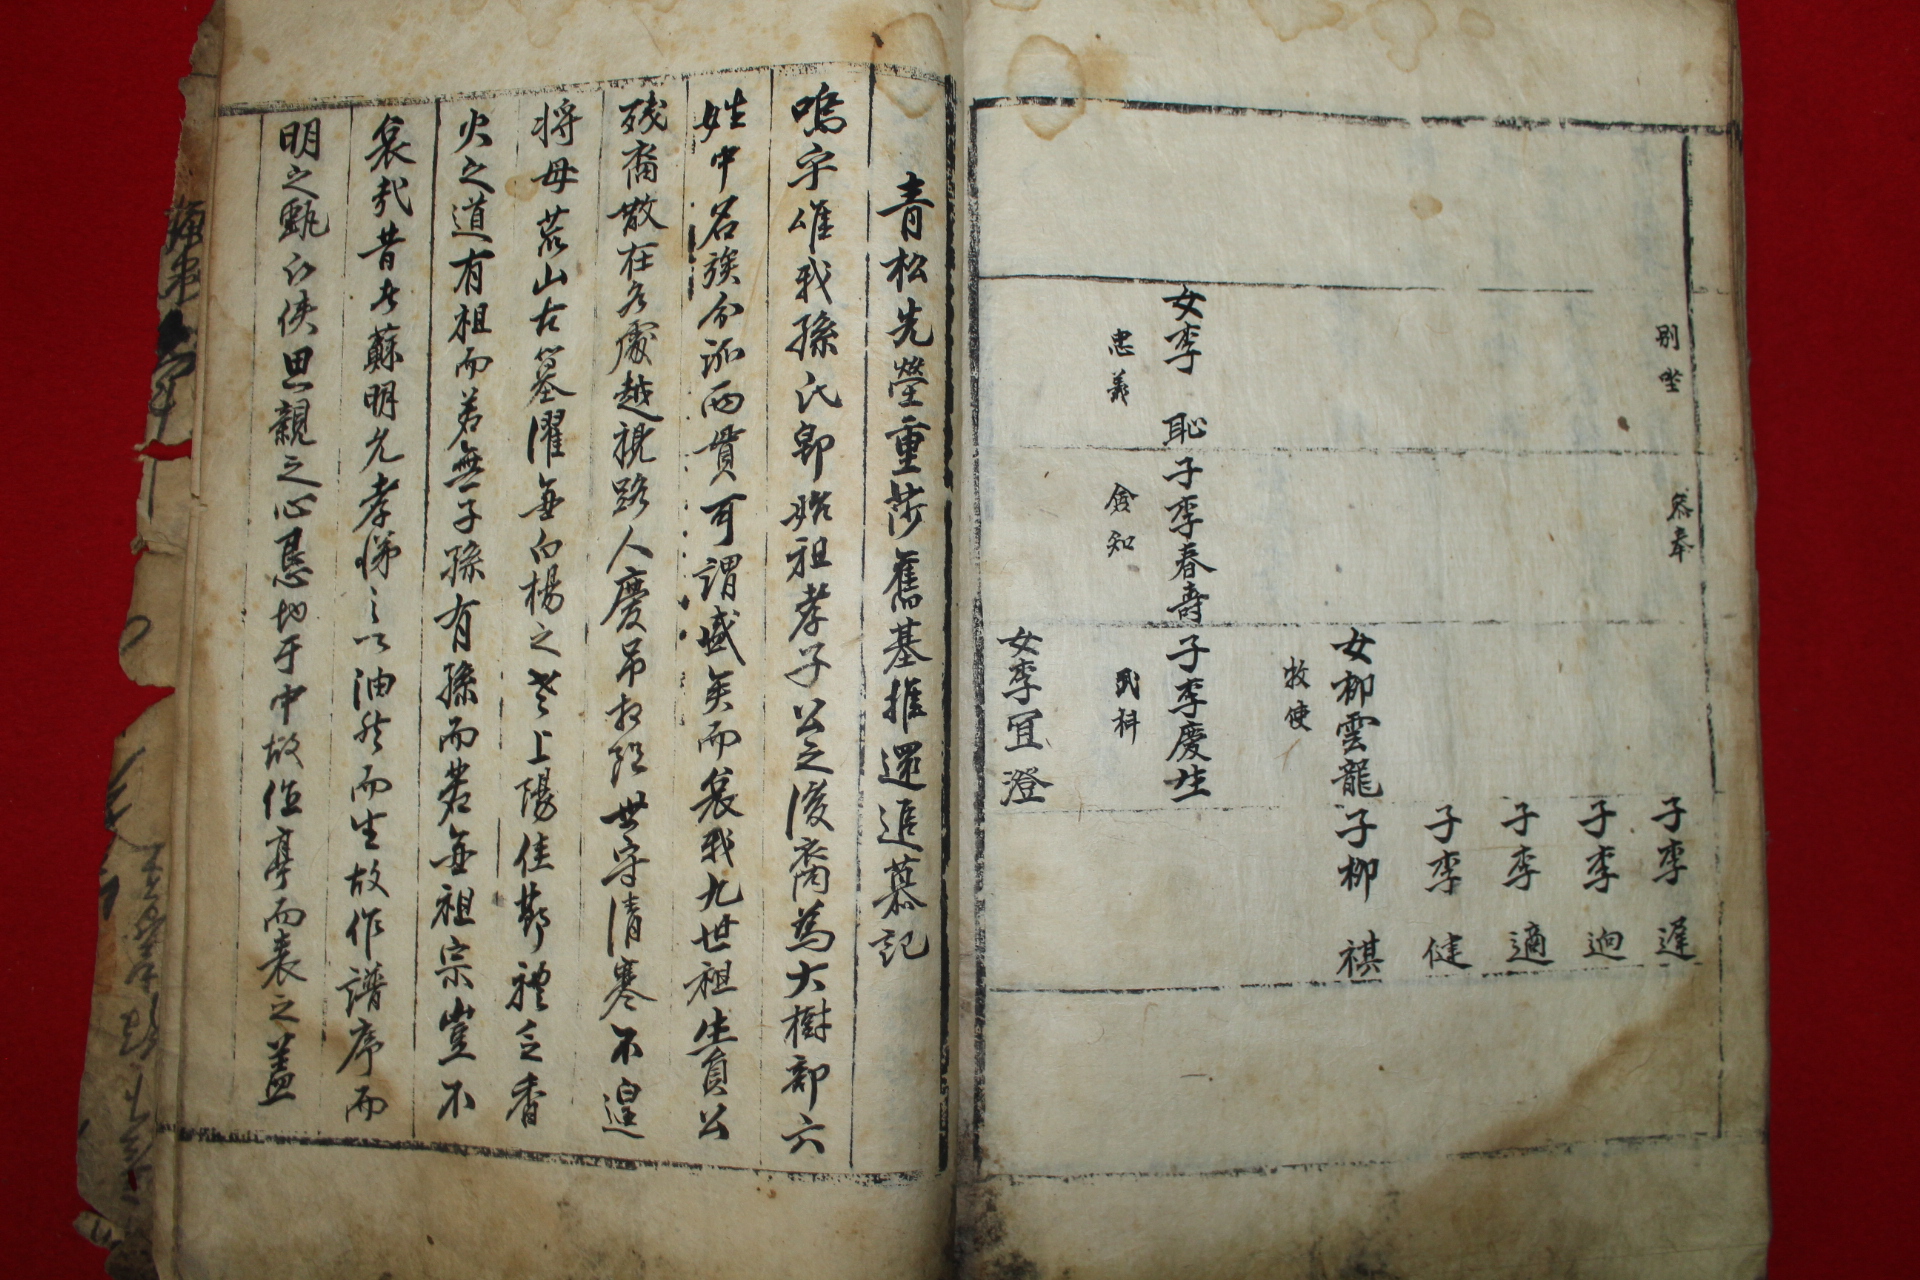 別坐
參奉
子李遲
子李逈
子李適
子李健
女柳雲龍
子柳祺
牧使
女李 恥
子李春壽
子李慶生
忠義
僉知
武科
女李宜澄
青松先塋重莎舊基推還追慕記
嗚乎唯我孫氏即始祖孝子公之後裔為大樹部六
姓中名族分派兩貫可謂盛矣而哀我九世祖生員公
殘裔散在各處越視路人慶吊相阻世守清寒不遑
將母荒山古墓濯無白楊之 上陽佳
火之道有祖而若無子孫有孫而若無祖宗豈不
哀哉昔者蘇明允孝悌之 油然而生故作譜序而
明之甄 侠思親之心 於中故作亭而表之盖